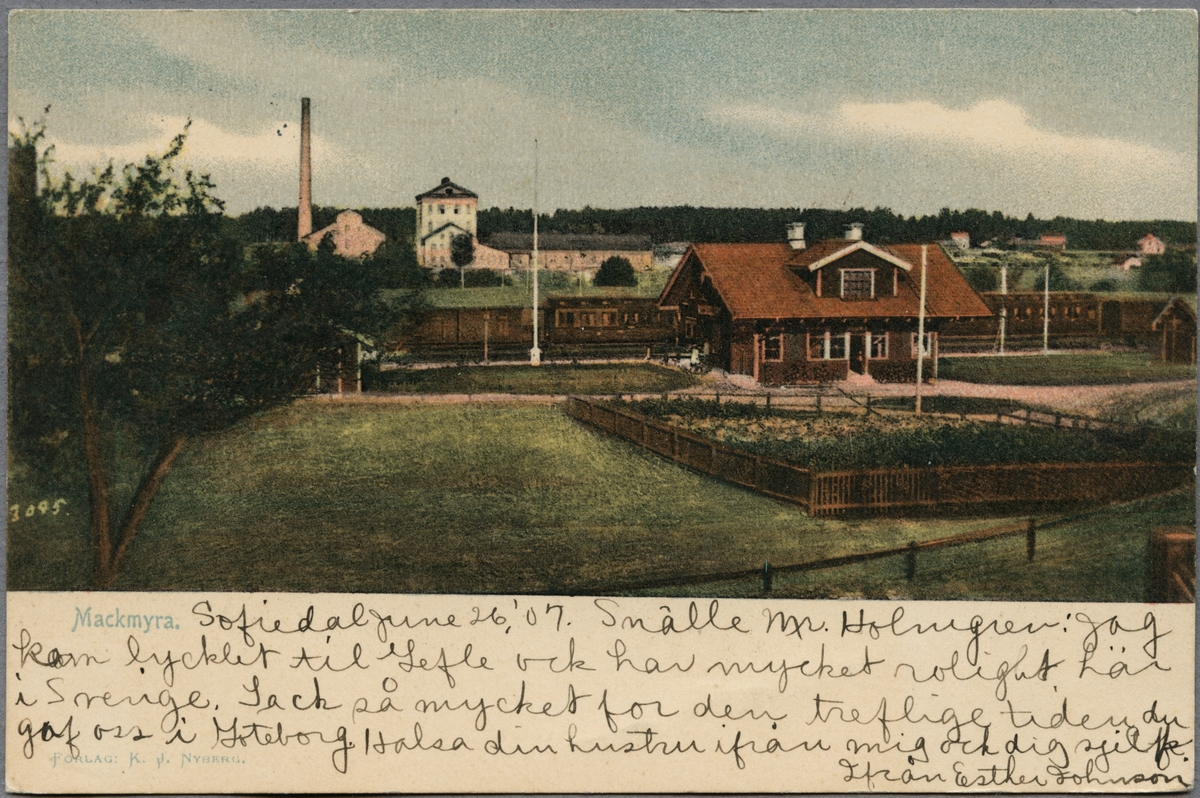 3095.
Mackmyra. Sofiedal June 26, '07. Snälle Mr. Holmgren: Jag
kom lycklet til Gefle ock har mycket rolight här
i Sverige. Tack så mycket for den treflige tiden du
gaf oss i Goteborg. Halsa din hustru ifrån mig ock dig sjelf.
FÖRLAG: K. J. NYBERG.
Ifrån Esther Johnson